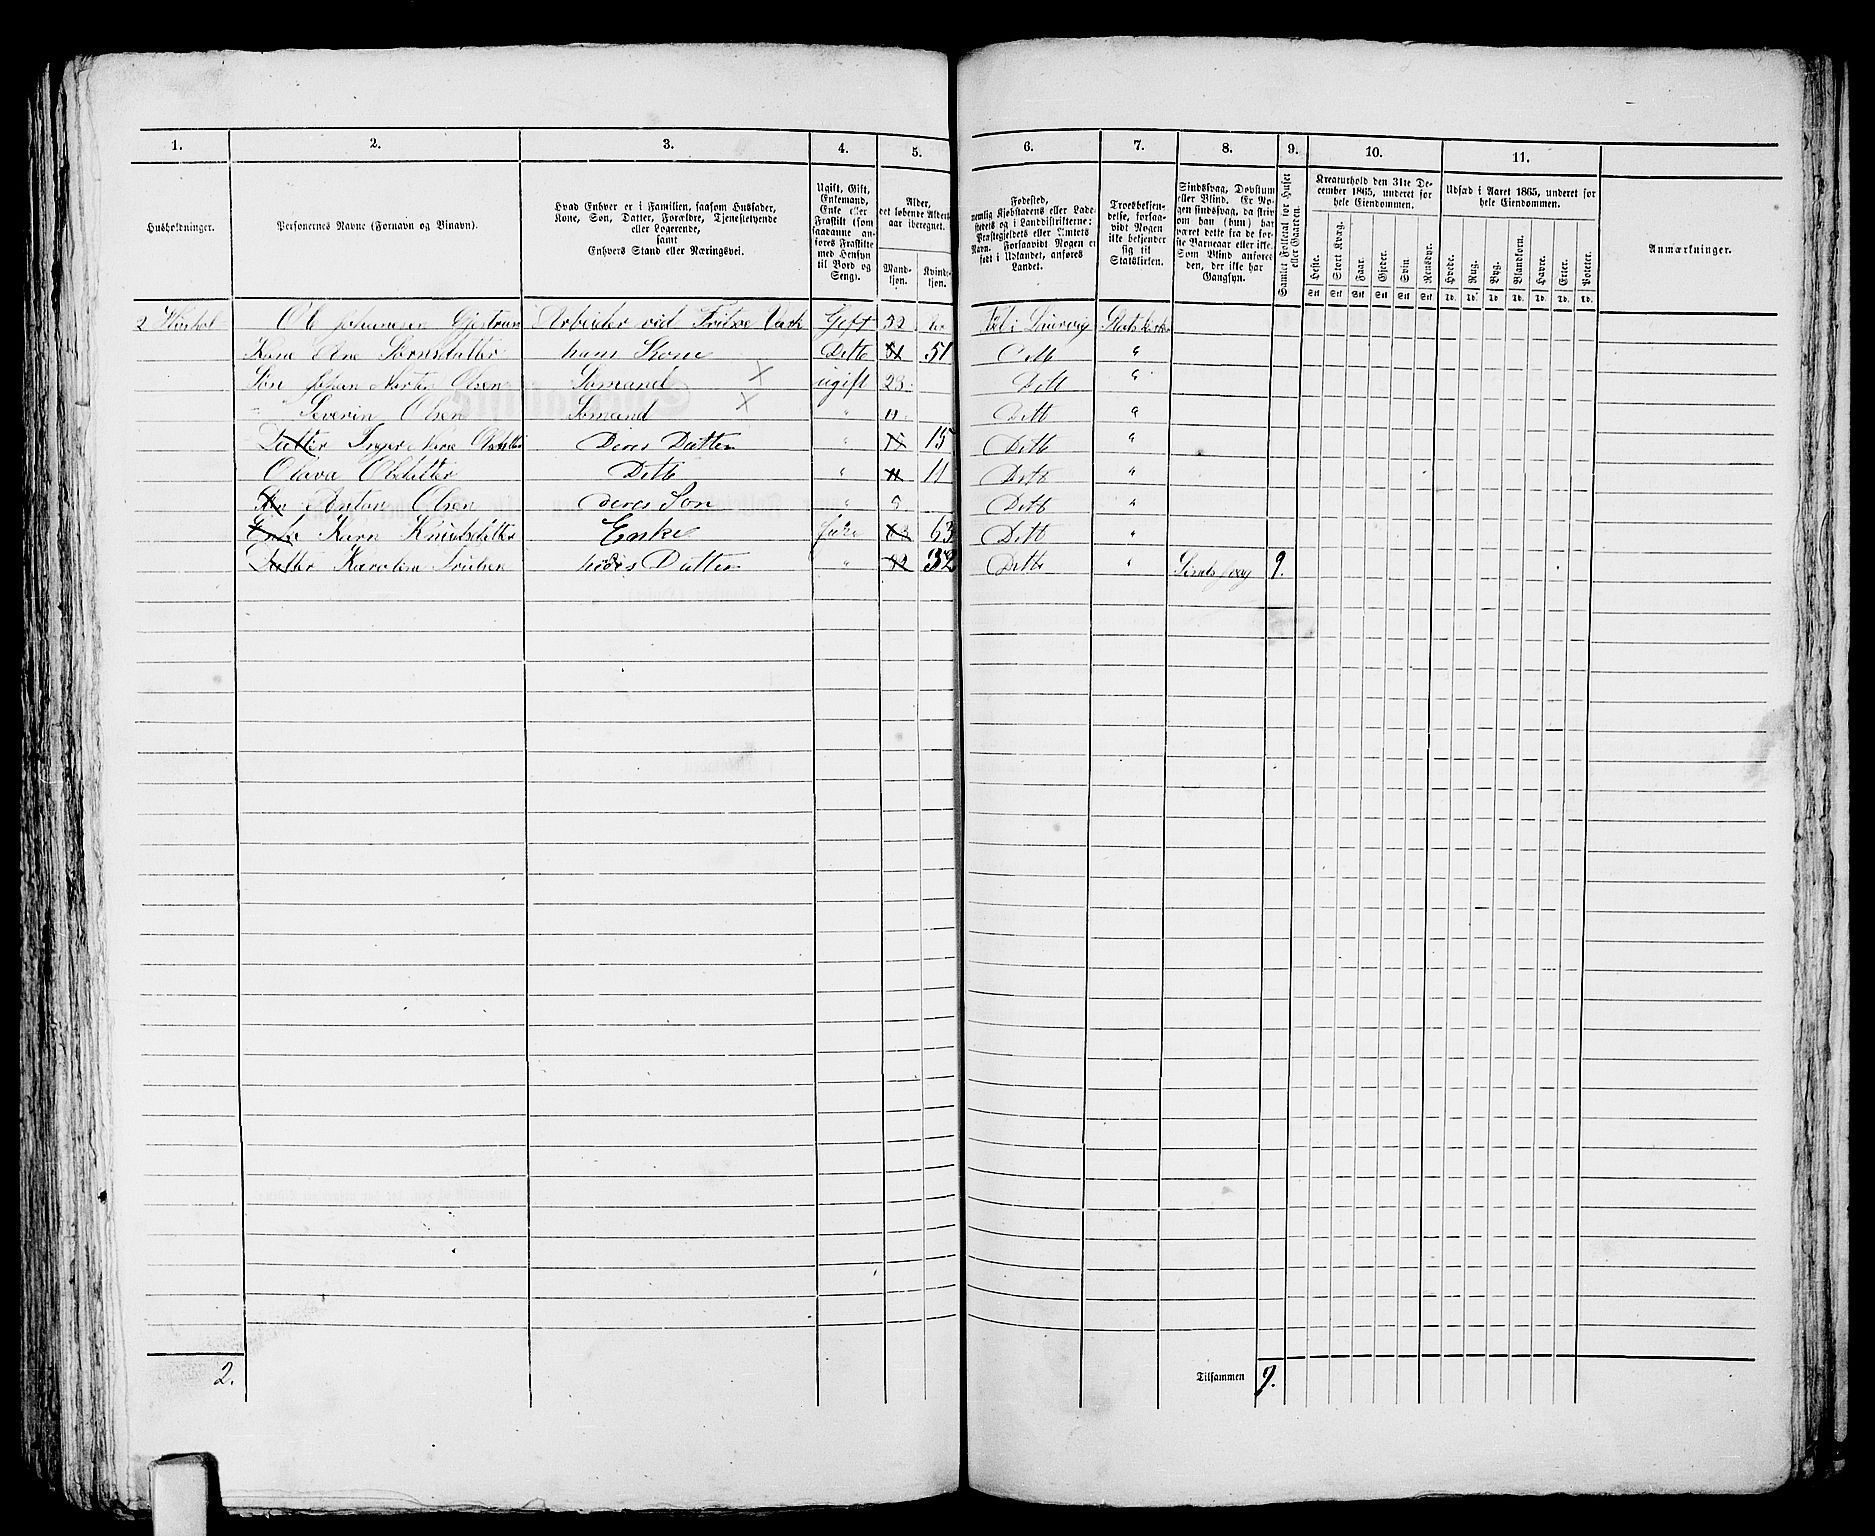 1. 2. 3. 4. 5. 6. 7. 8. 9. 10. 11.
Husholdninger.
Personernes Navne (Fornavn og Binavn).
Hvad Enhver er i Familien, saasom Husfader,
Kone, Søn, Datter, Forældre, Tjenestetyende
eller Logerende,
samt
Enhvers Stand eller Næringsvei.
Ugift, Gift,
Enkemand,
Enke eller
Fraskilt (som
saadanne an-
føres Fraskilte
med Hensyn
til Bord og
Seng).
Alder,
det løbende Alders-
aar iberegnet.
Mand-
kjøn.
Kvinde-
kjøn.
Fødested,
nemlig Kjøbstadens eller Lade-
stedets og i Landdistrikterne:
Præstegjeldets eller Amtets
Navn. Forsaavidt Nogen er
født i Udlandet, anføres
Landet.
Troesbekjen-
delse, forsaa-
vidt Nogen
ikke bekjender
sig til
Statskirken.
Sindssvag, Døvstum
eller Blind. Er No-
gen sindssvag, da skriv
om han (hun) har
været dette fra de før-
ste Barneaar eller ikke.
Som Blind anføres
den, der ikke har
Gangsyn.
Samlet Folketal for Huset
eller Gaarden.
Kreaturhold den 31te De-
cember 1865, underet for
hele Eiendommen.
Heste. Stort Kvæg. Faar. Gjeder. Svin. Rensdyr.
Stk Stk Stk Stk Stk Stk
Udsæd i Aaret 1865, underet for
hele Eiendommen.
Hvede. Rug. Byg. Blandkorn. Havre. Erter. Poteter.
Td. Td. Td. Td. Td. Td. Td.
Anmærkninger.
2 Ole Johansen Arbeider ved Fritzø Værk Gift 52
Kone hans Kone Ditto 51 51 Ditto "
Søn Johan Martin Olsen Sømand X ugift 28 Ditto "
" Severin Olsen Sømand X " Ditto "
Datter Inger Deres Datter " 15 15 Ditto "
Olava Olsdatter Ditto " 11 11 Ditto "
Søn Anton Olsen Deres Søn " 9 Ditto "
Enke Karn Knudsdatter Enke Enke 63 Ditto "
Datter Karoline Datter " 32 Ditto " Sindssvag 9.
2.
Tilsammen 9.